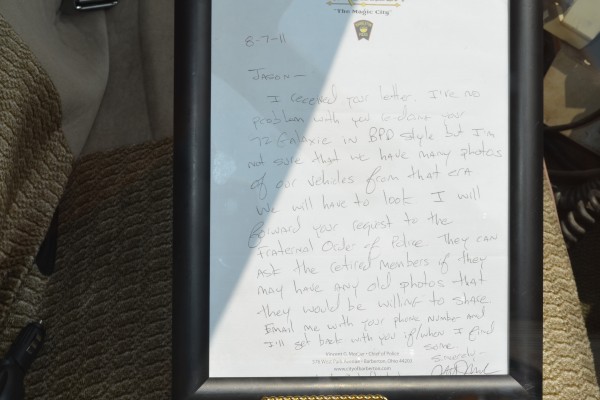 "The Magic City"
8-7-11
JASON—
I received your letter. I've no
problem with you re-doing your
72 Galaxie in BPD style but I'm
not sure that we have many photos
of our vehicles from that era
we will have to look I will
forward your request to the
Fraternal Order of Police They can
ask the retired members if they
may have any old photos that
they would be willing to share
Email me with your phone number and
I'll get back with you if/when I find
some.
Sincerely—
Vincent C. Morber • Chief of Police
576 West Park Avenue • Barberton, Ohio 44203
www.cityofbarberton.com